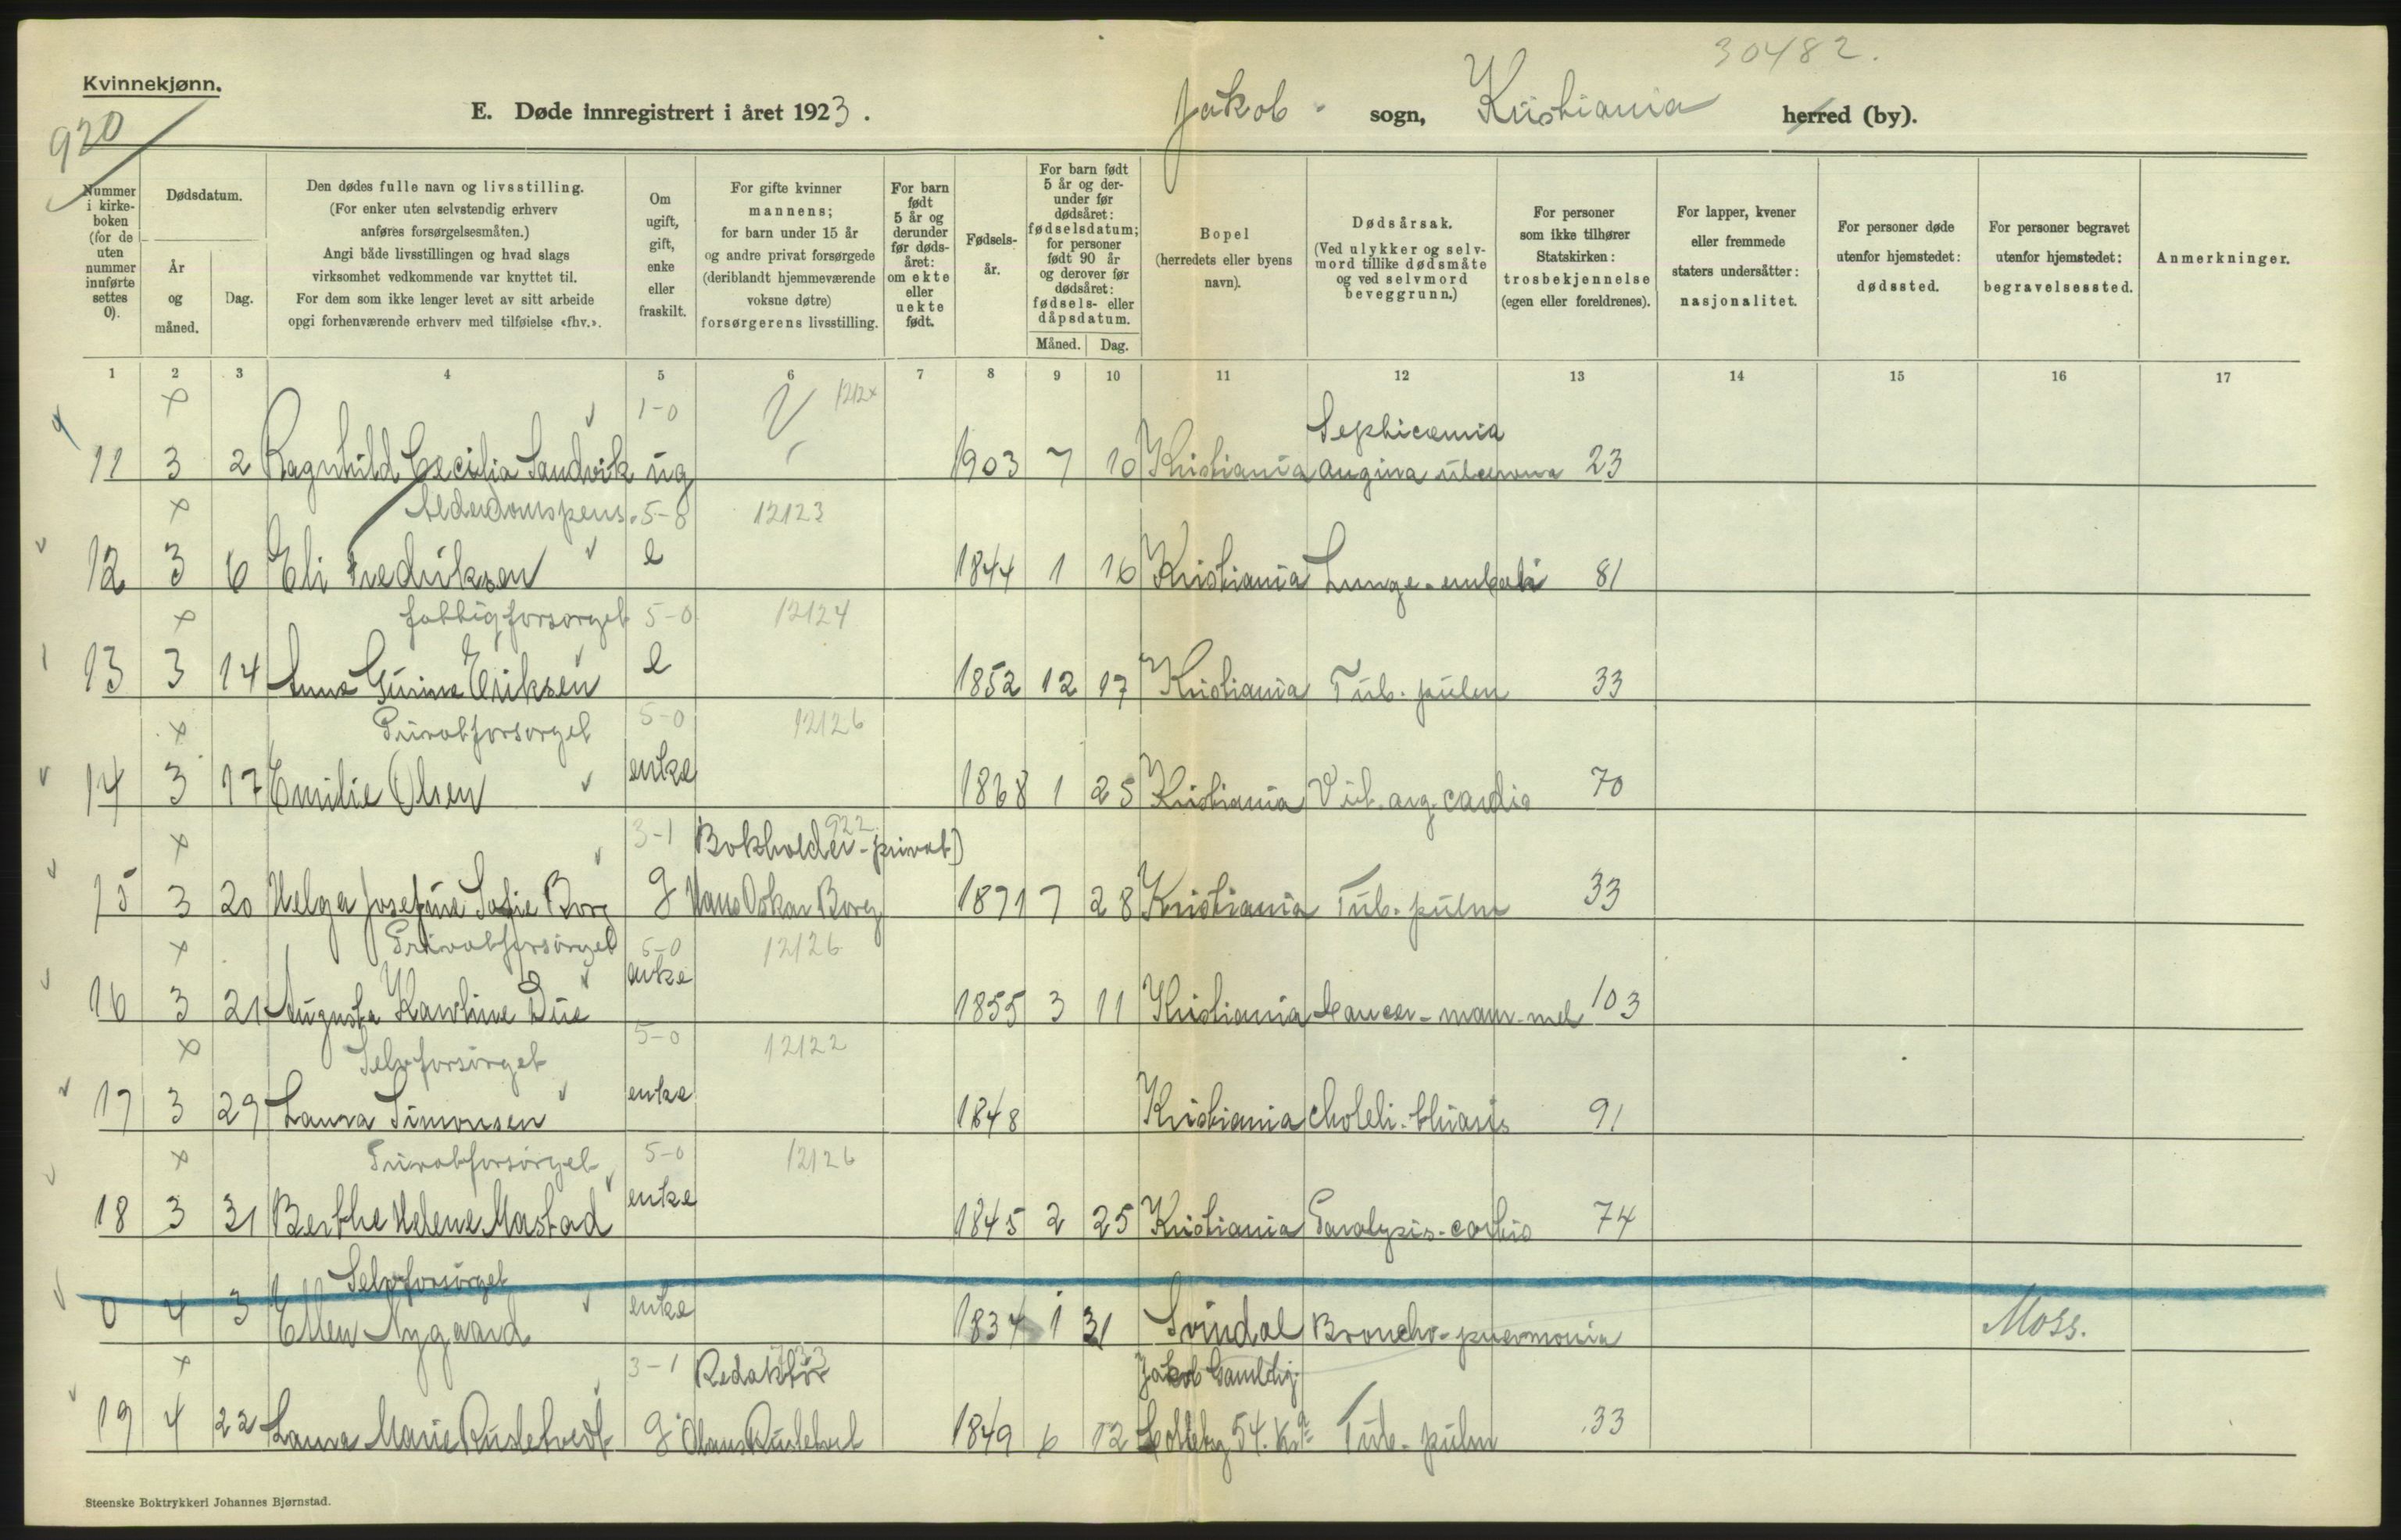 30482.
Kvinnekjønn.
920
E. Døde innregistrert i året 1923. Jakob sogn, Kristiania herred (by).
Nummer i kirke-boken (for de uten nummer innførte settes 0).
Dødsdatum.
År og måned.
Dag.
Den dødes fulle navn og livsstilling.
(For enker uten selvstendig erhverv
anføres forsørgelsesmåten.)
Angi både livsstillingen og hvad slags
virksomhet vedkommende var knyttet til.
For dem som ikke lenger levet av sitt arbeide
opgi forhenværende erhverv med tilføielse «fhv.».
Om ugift, gift, enke eller fraskilt.
For gifte kvinner
mannens;
for barn under 15 år
og andre privat forsørgede
(deriblandt hjemmeværende
voksne døtre)
forsørgerens livsstilling.
For barn født 5 år og derunder før døds-året: om ekte eller uekte født.
Fødsels-år.
For barn født 5 år og der-under før dødsåret: fødselsdatum; for personer født 90 år og derover før dødsåret: fødsels- eller dåpsdatum.
Måned. Dag.
Bopel
(herredets eller byens
navn).
Dødsårsak.
(Ved ulykker og selv-
mord tillike dødsmåte
og ved selvmord
beveggrunn.)
For personer
som ikke tilhører
Statskirken:
trosbekjennelse
(egen eller foreldrenes).
For lapper, kvener
eller fremmede
staters undersåtter:
nasjonalitet.
For personer døde
utenfor hjemstedet:
dødssted.
For personer begravet
utenfor hjemstedet:
begravelsessted.
Anmerkninger.
1 2 3 4 5 6 7 8 9 10 11 12 13 14 15 16 17
x 1-0 1212x Septicæmia
11 3 2 Ragnhild Cecilia Sandvik ug 1903 7 10 Kristiania angina ulcerosa 23
x Alderdomspens. 5-8 12123
12 3 6 Eli Fredriksen e 1844 1 16 Kristiania Lunge-emboli 81
x fattigforsørget 5-0 12124
13 3 14 Anna Gurine Eriksen e 1852 12 17 Kristiania Tub. pulm 33
x Privatforsørget 5-0 12126
14 3 17 Emilie Olsen enke 1868 1 25 Kristiania Vit. org. cardia 70
x 3-1 922 Bokholder-privat)
15 3 20 Helga Josefine Sofie Borg g Hans Oskar Borg 1871 7 28 Kristiania Tub. pulm 33
x Privatforsørget 5-0 12126
16 3 21 Augusta Karoline Due enke 1855 3 11 Kristiania Cancer-mam-mel 103
x Selvforsørget 5-0 12122
17 3 29 Laura Simonsen enke 1848 Kristiania choleli-thiasis 91
x Privatforsørget 5-0 12126
18 3 31 Berthe Helene Mastad enke 1845 2 25 Kristiania Paralysis-cordis 74
Selvforsørget
0 4 3 Ellen Nygaard enke 1834 1 31 Svindal Broncho-pneumonia Moss.
x 3-1 Redaktør Jakob Gamlehj.
19 4 22 Laura Marie g Olaus 1849 6 12 54. Tub. pulm 33
Steenske Boktrykkeri Johannes Bjørnstad.